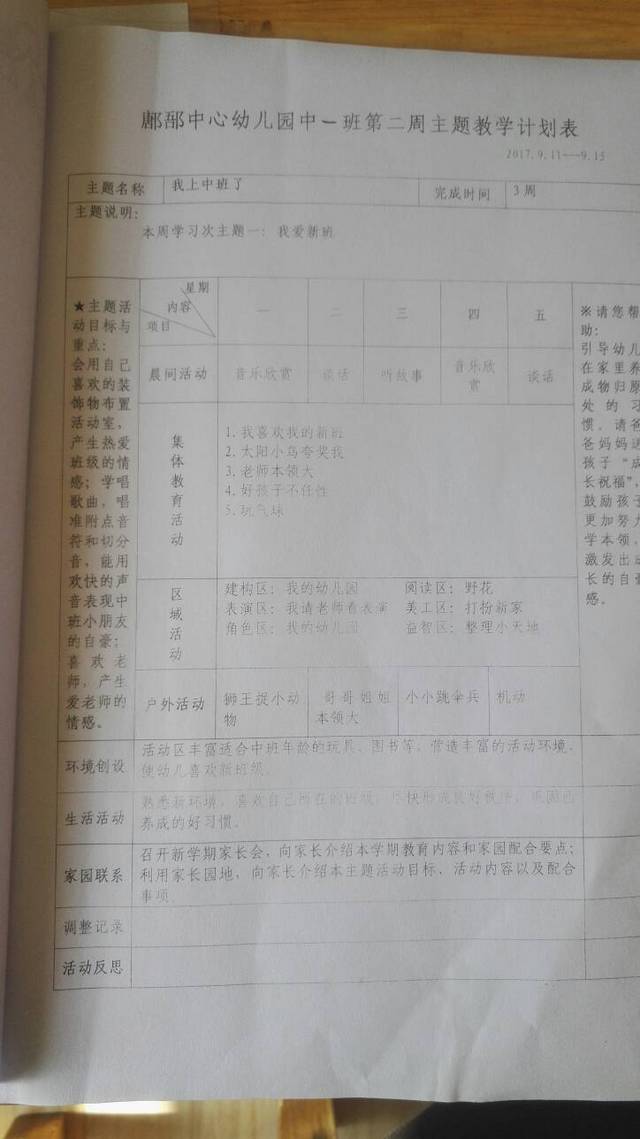 鄌郚中心幼儿园中一班第二周主题教学计划表
2017.9.11—9.15
主题名称 我上中班了 完成时间 3周
主题说明：
本周学习次主题一：我爱新班
★主题活
动目标与
重点：
会用自己
喜欢的装
饰物布置
活动室，
产生热爱
班级的情
感；学唱
歌曲，唱
准附点音
符和切分
音，能用
欢快的声
音表现中
班小朋友
的自豪；
喜欢老
师，产生
爱老师的
情感。
星期
内容
项目
一 二 三 四 五
晨间活动 音乐欣赏 谈话 听故事 音乐欣
赏 谈话
集
体
教
育
活
动
1.我喜欢我的新班
2.太阳小鸟夸奖我
3.老师本领大
4.好孩子不任性
5.玩气球
区
域
活
动
建构区：我的幼儿园 阅读区：野花
表演区：我请老师看表演 美工区：打扮新家
角色区：我的幼儿园 益智区：整理小天地
户外活动 狮王捉小动
物 哥哥姐姐
本领大 小小跳伞兵 机动
※请您帮
助：
引导幼儿
在家里养
成物归原
处的习
惯，请爸
爸妈妈送
孩子“成
长祝福”，
鼓励孩子
更加努力
学本领，
激发出成
长的自豪
感。
环境创设 活动区丰富适合中班年龄的玩具、图书等，营造丰富的活动环境，
使幼儿喜欢新班级。
生活活动 熟悉新环境，喜欢自己所在的班级，尽快形成良好秩序，巩固已
养成的好习惯。
家园联系 召开新学期家长会，向家长介绍本学期教育内容和家园配合要点；
利用家长园地，向家长介绍本主题活动目标、活动内容以及配合
事项
调整记录
活动反思